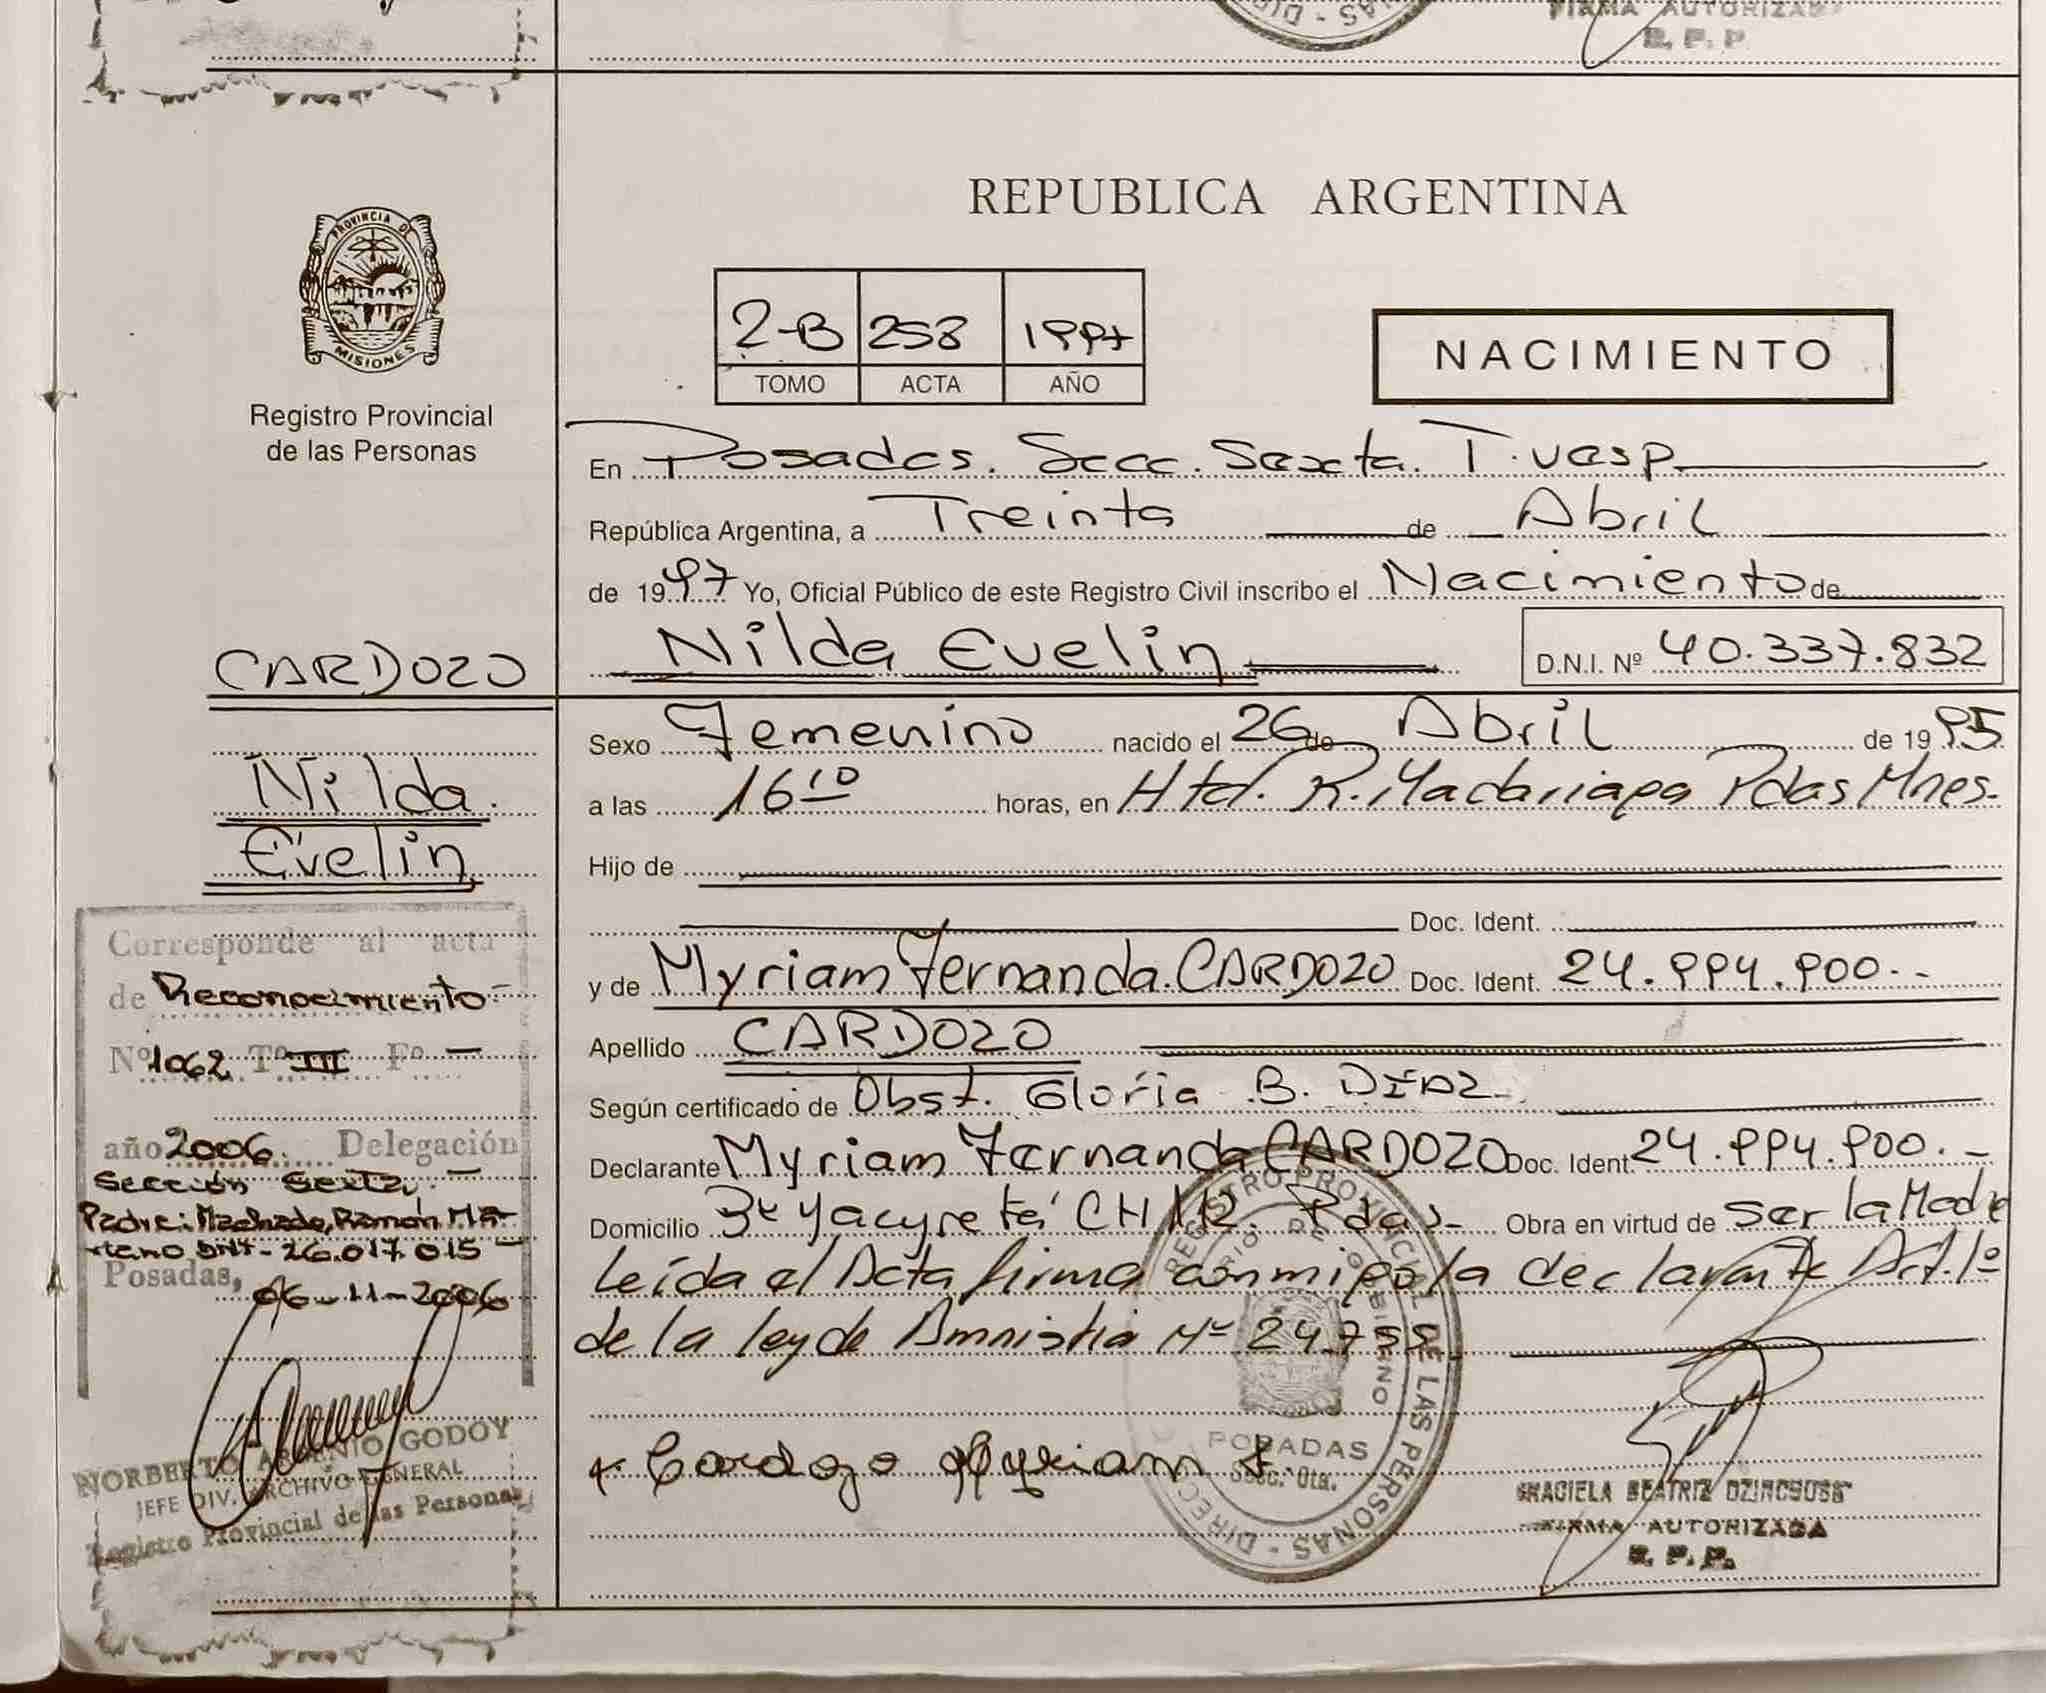 FIRMA AUTORIZADA
R. P. P.
REPUBLICA ARGENTINA
PROVINCIA DE
MISIONES
Registro Provincial
de las Personas
2-B 258 1997
TOMO ACTA AÑO
NACIMIENTO
En Posadas. Secc. Sexta. T. vesp.
República Argentina, a Treinta de Abril
de 1997 Yo, Oficial Público de este Registro Civil inscribo el Nacimiento de
Nilda Evelin D.N.I. Nº 40.337.832
CARDOZO
Nilda
Evelin
Sexo Femenino nacido el 26 de Abril de 1995
a las 16 10 horas, en Htal. R. Madariaga Pdas Mnes.
Hijo de
Doc. Ident.
y de Myriam Fernanda CARDOZO Doc. Ident. 24.994.900.-
Apellido CARDOZO
Según certificado de Obst. Gloria B. DIAZ
Declarante Myriam Fernanda CARDOZO Doc. Ident 24.994.900.-
Domicilio Bº Yacyretá CH 112. Pdas- Obra en virtud de ser la Madre
Leída el Acta firma conmigo la declarante Art. 1º
de la ley de Amnistia Nº 24.755.
Cardozo Myriam F.
Corresponde al acta
de Reconocimiento
Nº 1062 Tº III Fº -
año 2006. Delegación
Sección Sexta.-
Padre: Machado, Ramón Ma-
riano DNI- 26.017.015-
Posadas, 06-11-2006
NORBERTO GODOY
JEFE DIV. ARCHIVO GENERAL
Registro Provincial de las Personas
REGISTRO PROVINCIAL DE LAS PERSONAS - DIREC
POSADAS
Secc. 6ta.
GRACIELA BEATRIZ
FIRMA AUTORIZADA
R. P. P.